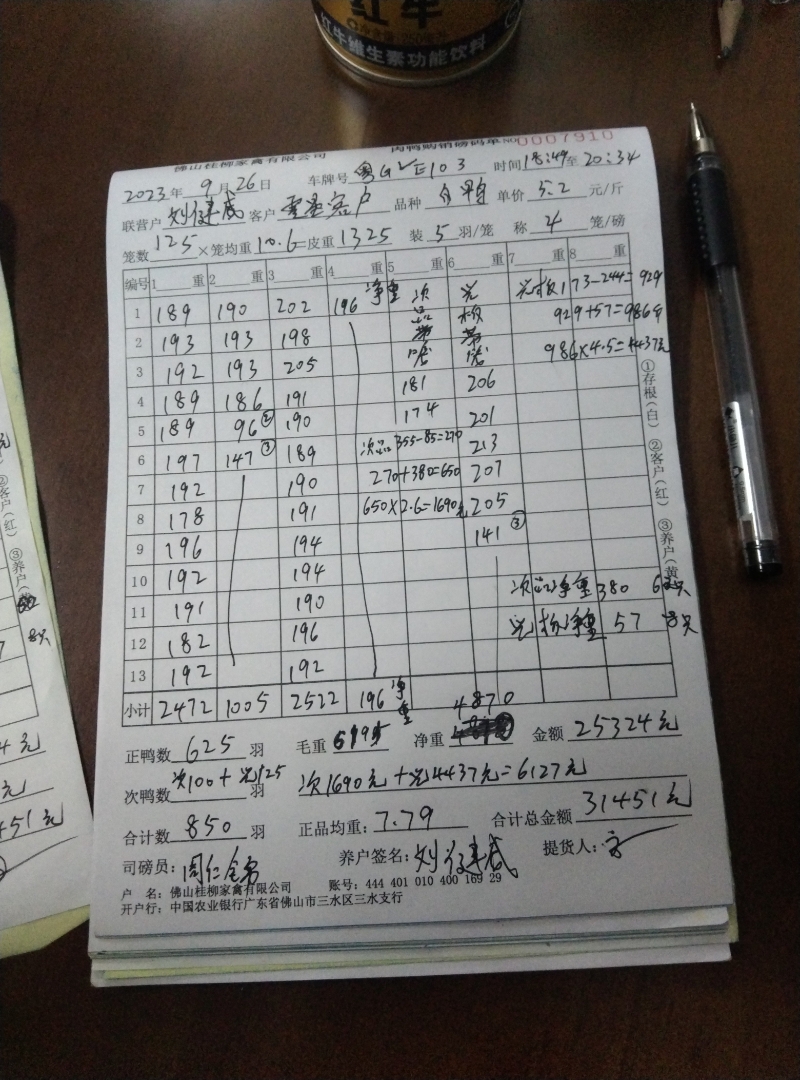 红牛
红牛维生素功能饮料
佛山桂柳家禽有限公司 肉鸭购销磅码单 No 0007910
2023年9月26日 车牌号 时间18:49至20:34
联营户 客户 品种 单价5.2元/斤
笼数125×笼均重10.6=皮重1325 装5羽/笼 称4笼/磅
编号 1 重 2 重 3 重 4 重 5 重 6 重 7 重 8 重
1 189 190 202 196 净重 次品带嗉 光板带嗉 光板1173-244=929
2 193 193 198 929+57=986斤
3 192 193 205 986×4.5=4437元
4 189 186 191 181 206
5 189 96② 190 174 201
6 197 147③ 189 次品355-85=270 213
7 192 190 270+380=650 207
8 178 191 650×2.6=1690元 205
9 196 194 141③
10 192 194 次品净重380
11 191 190 光板净重57
12 182 196
13 192 192
小计 2472 1005 2522 196净重 4870
正鸭数625羽 毛重6195 净重 金额25324元
次鸭数 次100+光125 羽 次1690元+光4437元=6127元
合计数850羽 正品均重:7.79 合计总金额31451元
司磅员: 养户签名: 提货人:
户 名:佛山桂柳家禽有限公司 账号:444 401 010 400 169 29
开户行:中国农业银行广东省佛山市三水区三水支行
①存根(白) ②客户(红) ③养户(黄)
②客户(红) ③养户
451元